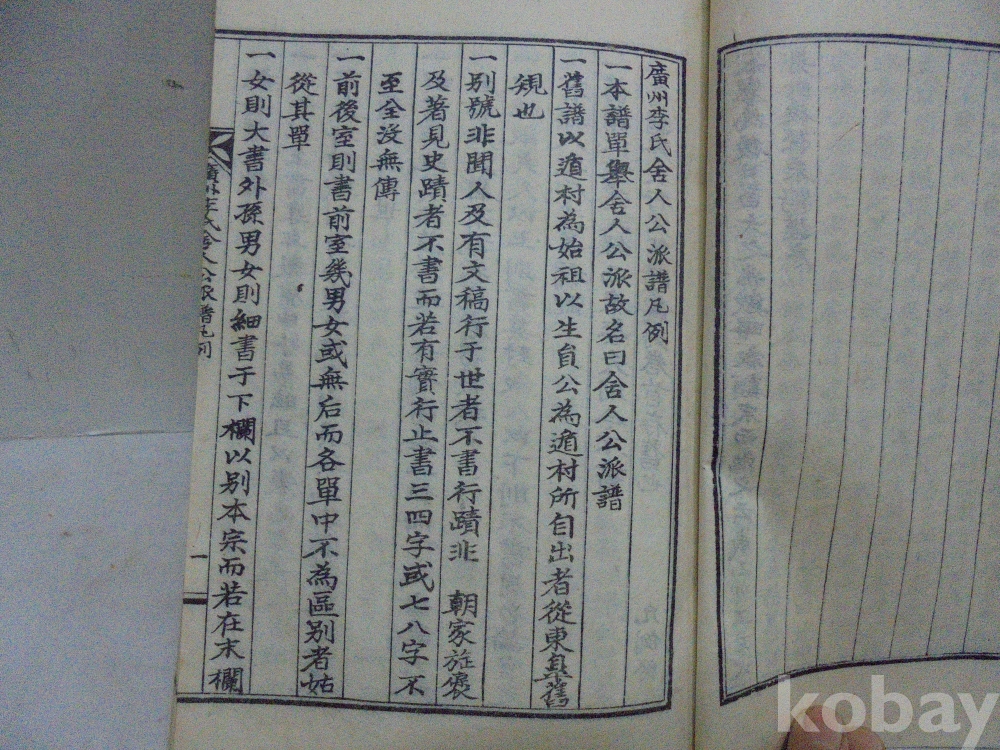 廣州李氏舍人公派譜凡例
一本譜單舉舍人公派故名曰舍人公派譜
一舊譜以遁村為始祖以生員公為遁村所自出者從東臯舊
規也
一別號非聞人及有文稿行于世者不書行蹟非 朝家旌褒
及著見史蹟者不書而若有實行止書三四字或七八字不
至全沒無傳
一前後室則書前室幾男女或無后而各單中不為區别者姑
從其單
一女則大書外孫男女則細書于下欄以别本宗而若在末欄
廣州李氏舍人公派譜凡例
一
kobay